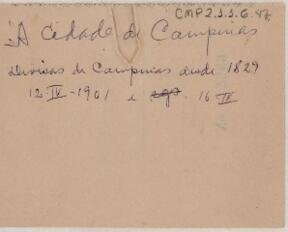 CMP2.1.1.6.47
A Cidade de Campinas
Divisas de Campinas desde 1829
12-IV-1901 e 16 IV